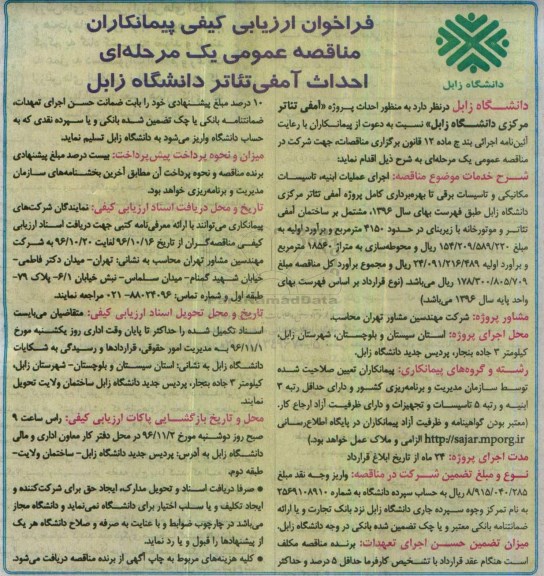 فراخوان ارزیابی کیفی پیمانکاران
مناقصه عمومی یک مرحله‌ای
احداث آمفی‌تئاتر دانشگاه زابل
دانشگاه زابل
دانشگاه زابل درنظر دارد به منظور احداث پروژه «آمفی تئاتر
مرکزی دانشگاه زابل» نسبت به دعوت از پیمانکاران با رعایت
آئین‌نامه اجرائی بند ج ماده ۱۲ قانون برگزاری مناقصات» جهت شرکت در
مناقصه عمومی یک مرحله‌ای به شرح ذیل اقدام نماید:
شرح خدمات موضوع مناقصه: اجرای عملیات ابنیه، تاسیسات
مکانیکی و تاسیسات برقی تا بهره‌برداری کامل پروژه آمفی تئاتر مرکزی
دانشگاه زابل طبق فهرست بهای سال ۱۳۹۶، مشتمل بر ساختمان آمفی
تئاتر و موتورخانه با زیربنای در حدود ۴۱۵۰ مترمربع و برآورد اولیه به
مبلغ ۱۵۴/۲۰۹/۵۸۹/۲۲۰ ریال و محوطه‌سازی به متراژ ۱۸۵۶۰ مترمربع
و برآورد اولیه ۲۴/۰۹۱/۲۱۶/۴۸۹ ریال و مجموع برآورد کل مناقصه مبلغ
۱۷۸/۳۰۰/۸۰۵/۷۰۹ ریال می‌باشد. (نوع قرارداد بر اساس فهرست بهای
واحد پایه سال ۱۳۹۶ می‌باشد)
مشاور پروژه: شرکت مهندسین مشاور تهران محاسب.
محل اجرای پروژه: استان سیستان و بلوچستان، شهرستان زابل،
کیلومتر ۳ جاده بنجار، پردیس جدید دانشگاه زابل.
رشته و گروه‌های پیمانکاری: پیمانکاران تعیین صلاحیت شده
توسط سازمان مدیریت و برنامه‌ریزی کشور و دارای حداقل رتبه ۳
ابنیه و رتبه ۵ تاسیسات و تجهیزات و دارای ظرفیت آزاد ارجاع کار.
(معتبر بودن گواهینامه و ظرفیت آزاد پیمانکاران در پایگاه اطلاع‌رسانی
http://sajar.mporg.ir الزامی و ملاک عمل خواهد بود)
مدت اجرای پروژه: ۲۴ ماه از تاریخ ابلاغ قرارداد
نوع و مبلغ تضمین شرکت در مناقصه: واریز وجه نقد مبلغ
۸/۹۱۵/۰۴۰/۲۸۵ ریال به حساب سپرده دانشگاه به شماره ۲۵۶۹۱۰۸۹۱۰
به نام تمرکز وجوه سپرده جاری دانشگاه زابل نزد بانک تجارت و یا ارائه
ضمانتنامه بانکی معتبر و یا چک تضمین شده بانکی در وجه دانشگاه زابل.
میزان تضمین حسن اجرای تعهدات: برنده مناقصه مکلف
است هنگام عقد قرارداد با تشخیص کارفرما حداقل ۵ درصد و حداکثر
۱۰ درصد مبلغ پیشنهادی خود را بابت ضمانت حسن اجرای تعهدات،
ضمانتنامه بانکی یا چک تضمین شده بانکی و یا سپرده نقدی که به
حساب دانشگاه واریز می‌شود به دانشگاه زابل تسلیم نماید.
میزان و نحوه پرداخت پیش‌پرداخت: بیست درصد مبلغ پیشنهادی
برنده مناقصه و نحوه پرداخت آن مطابق آخرین بخشنامه‌های سازمان
مدیریت و برنامه‌ریزی خواهد بود.
تاریخ و محل دریافت اسناد ارزیابی کیفی: نمایندگان شرکت‌های
پیمانکاری می‌توانند با ارائه معرفی‌نامه کتبی جهت دریافت اسناد ارزیابی
کیفی مناقصه‌گران از تاریخ ۹۶/۱۰/۱۶ لغایت ۹۶/۱۰/۲۰ به شرکت
مهندسین مشاور تهران محاسب به نشانی: تهران- میدان دکتر فاطمی-
خیابان شهید گمنام- میدان سلماس- نبش خیابان ۶/۱- پلاک ۷۹-
طبقه اول و شماره تماس: ۸۸۰۲۴۰۹۶-۰۲۱ مراجعه نمایند.
تاریخ و محل تحویل اسناد ارزیابی کیفی: متقاضیان می‌بایست
اسناد تکمیل شده را حداکثر تا پایان وقت اداری روز یکشنبه مورخ
۹۶/۱۱/۱ به مدیریت امور حقوقی، قراردادها و رسیدگی به شکایات
دانشگاه زابل به نشانی: استان سیستان و بلوچستان- شهرستان زابل،
کیلومتر ۳ جاده بنجار، پردیس جدید دانشگاه زابل ساختمان ولایت تحویل
نمایند.
محل و تاریخ بازگشایی پاکات ارزیابی کیفی: راس ساعت ۹
صبح روز دوشنبه مورخ ۹۶/۱۱/۲ در محل دفتر کار معاون اداری و مالی
دانشگاه زابل به آدرس: پردیس جدید دانشگاه زابل- ساختمان ولایت-
طبقه دوم.
● صرفا دریافت اسناد و تحویل مدارک، ایجاد حق برای شرکت‌کننده و
ایجاد تکلیف و یا سلب اختیار برای دانشگاه نمی‌نماید و دانشگاه مجاز
می‌باشد در چارچوب ضوابط و با عنایت به صرفه و صلاح دانشگاه هر یک
از پیشنهادها را قبول و یا رد نماید.
● کلیه هزینه‌های مربوط به چاپ آگهی از برنده مناقصه دریافت می‌شود.